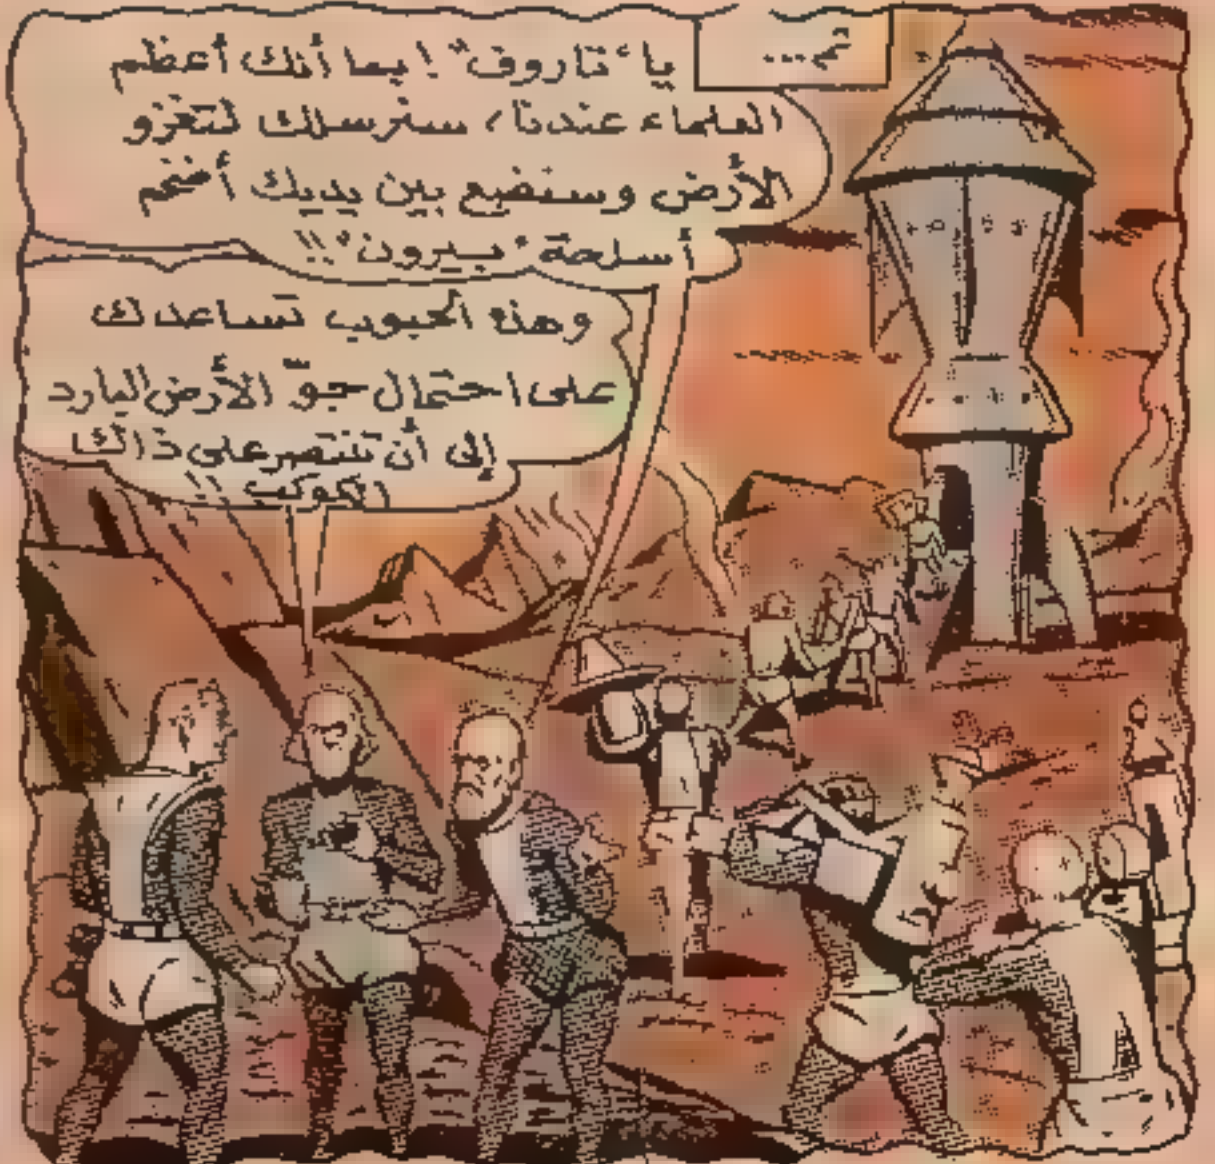 ثم...
يا "تاروف"! بما أنك أعظم
العلماء عندنا، سنرسلك لتغزو
الأرض وسنضع بين يديك أضخم
أسلحة "بيرون"!!
وهذه الحبوب تساعدك
على احتمال جوّ الأرض البارد
إلى أن تنتصر على ذالك
الكوكب!!